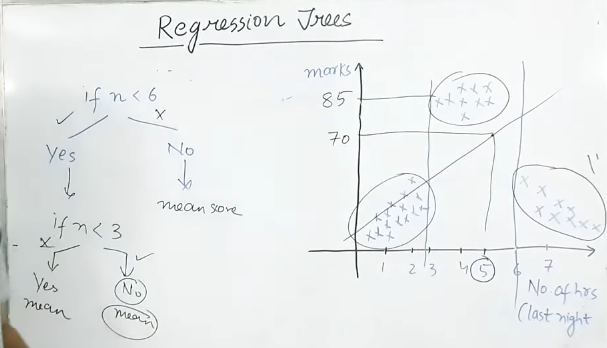 Regression Trees
if n < 6
Yes
No
mean score
if n < 3
Yes
mean
No
mean
marks
85
70
1 2 3 4 5 6 7
No of hrs
(last night